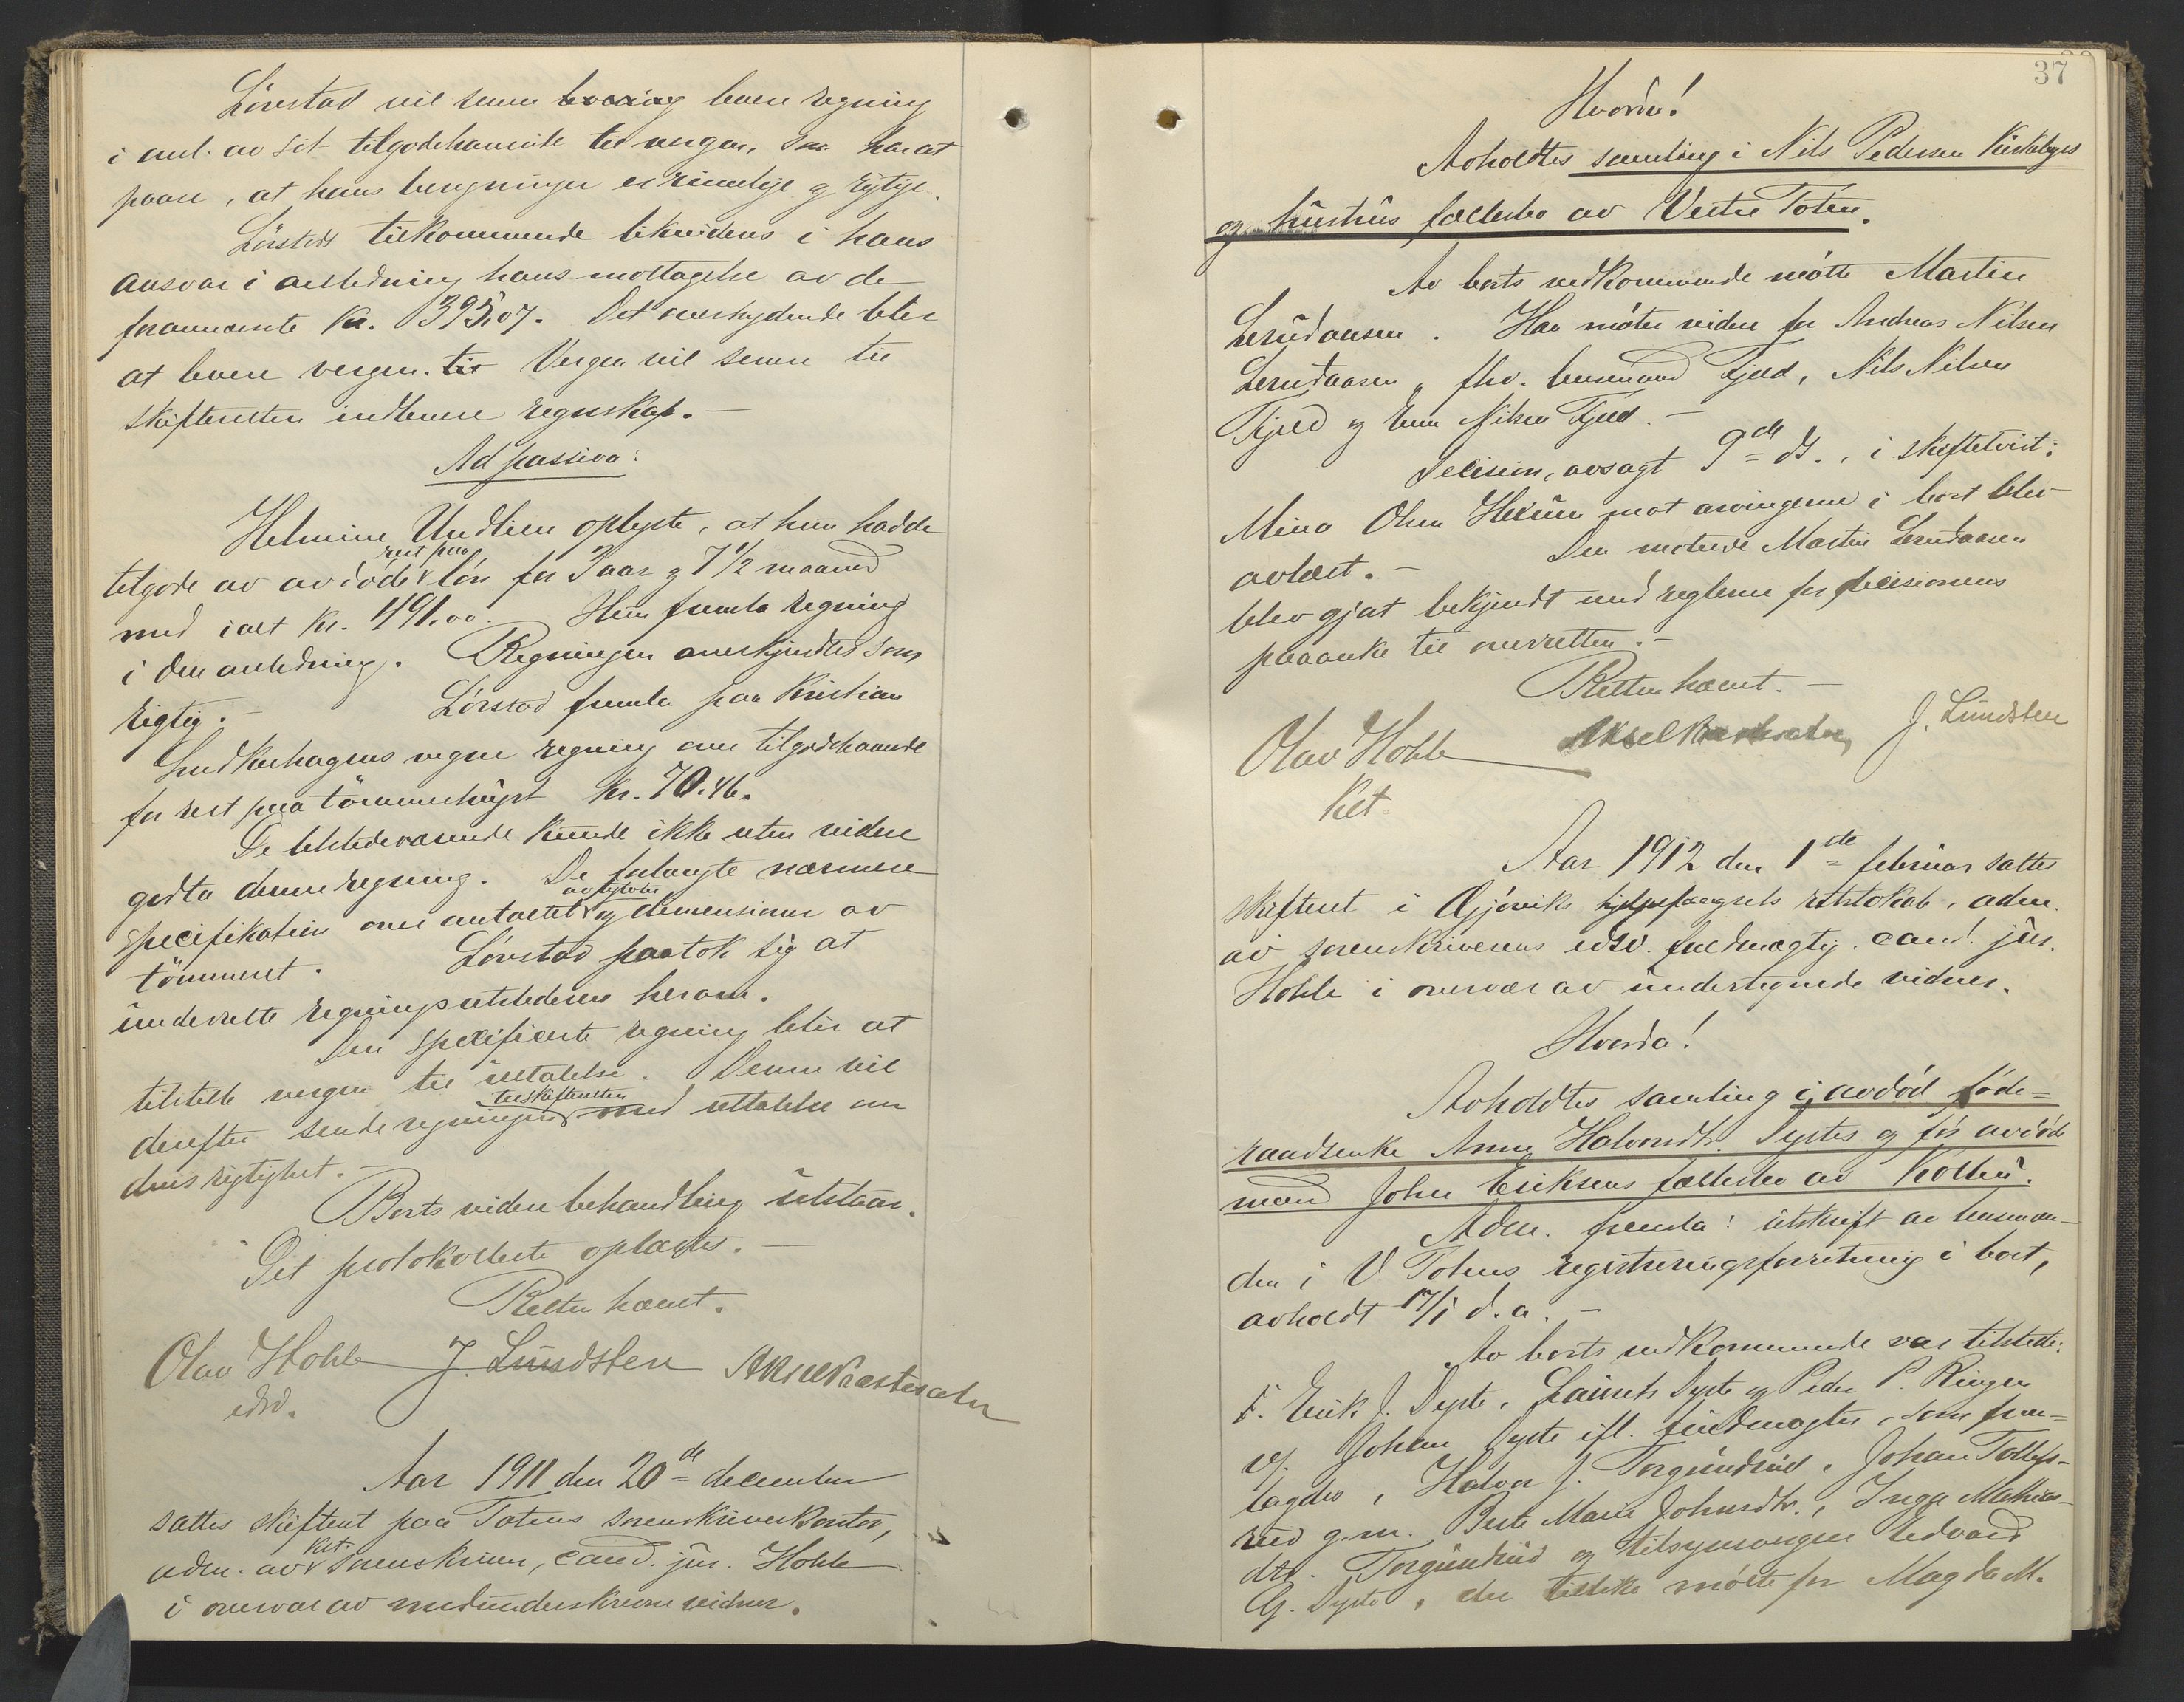 Lörstad vil senere levere regning
i anl. av sit tilgodehavende til vergen, som har at
paase, at hans beregninger er rimelige og rigtige.
Lörstads tilkommende likvideres i hans
ansvar i anledning hans mottagelse av de
forannævnte kr. 395,07. Det overskydende blir
at levere vergen. Vergen vil senere til
skifteretten indlevere regnskap.-
Ad passiva:
Helmine Undlien oplyste, at hun hadde
tilgode av avdöde rest paa lön for 3 aar og 7 1/2 maaned
med ialt kr. 491,00. Hun fremla regning
i den anledning. Regningen anerkjendtes som
rigtig.- Lörstad fremla paa Kristian
vegne regning om tilgodehavende
for rest paa tömmerhugst kr. 70.46.
De tilstedeværende kunde ikke uten videre
godta denne regning. De forlangte nærmere
specifikation over antallet av tylvter og dimensioner av
tömmeret. Lörstad paatok sig at
underrette regningsutstederen herom.
Den specificerte regning blir at
tilstille vergen til uttalelse. Denne vil
derefter sende regningen til skifteretten med uttalelse om
dens rigtighet.-
Boets videre behandling utstaar.
Det protokollerte oplæstes.-
Retten hævet.
Olav Hohle J. Lundsten Aksel
edsv.
Aar 1911 den 20de december
sattes skifteret paa Totens sorenskriverkontor,
adm. av kst. sorenskriver, cand. jur. Hohle
i overvær av medunderskrevne vidner.
37
Hvorda!
Avholdtes samling i Nils Pedersen
og hustrus fællesbo av Vestre Toten.
Av boets vedkommende mötte Martin
Lerudaasen. Han möter videre for Andreas Nilsen
Lerudaasen, fhv. lensmand Fjeld, Nils Nilsen
Fjeld og Nilsen Fjeld.-
Decision, avsagt 9de ds., i skiftetvist:
Mina Olsen mot arvingerne i boet blev
avlæst.- Den mötende Martin Lerudaasen
blev gjort bekjendt med reglerne for decisionens
paaanke til overretten.-
Retten hævet.-
Olav Hohle Aksel J. Lundsten
kst.
Aar 1912 den 1ste februar sattes
skifteret i Gjöviks hjelpefængsels retslokale, adm.
av sorenskriverens edsv. fuldmægtig, cand. jur.
Hohle i overvær av undertegnede vidner.
Hvorda!
Avholdtes samling i avdöd föde=
raadsenke Anne Halvorsdtr. Dystes og för avdöde
mand John Eriksens fællesbo av Kolbu.
Adm. fremla: utskrift av lensman-
den i V Totens registreringsforretning i boet,
avholdt 17/1 d. a.-
Av boets vedkommende var tilstede:
F. Erik J. Dyste, Laurits Dyste og Peder P. Ringen
vg. Johan Dyste ifl. fuldmagter, som frem=
lagdes, Halvor J. Torgundrud, Johan Tollefs-
rud g.m. Berte Marie Johnsdtr., Inga Mathias-
dtr. Torgundrud og tilsynsvergen Edvard
G. Dyste, der tillike mötte for Magda M.